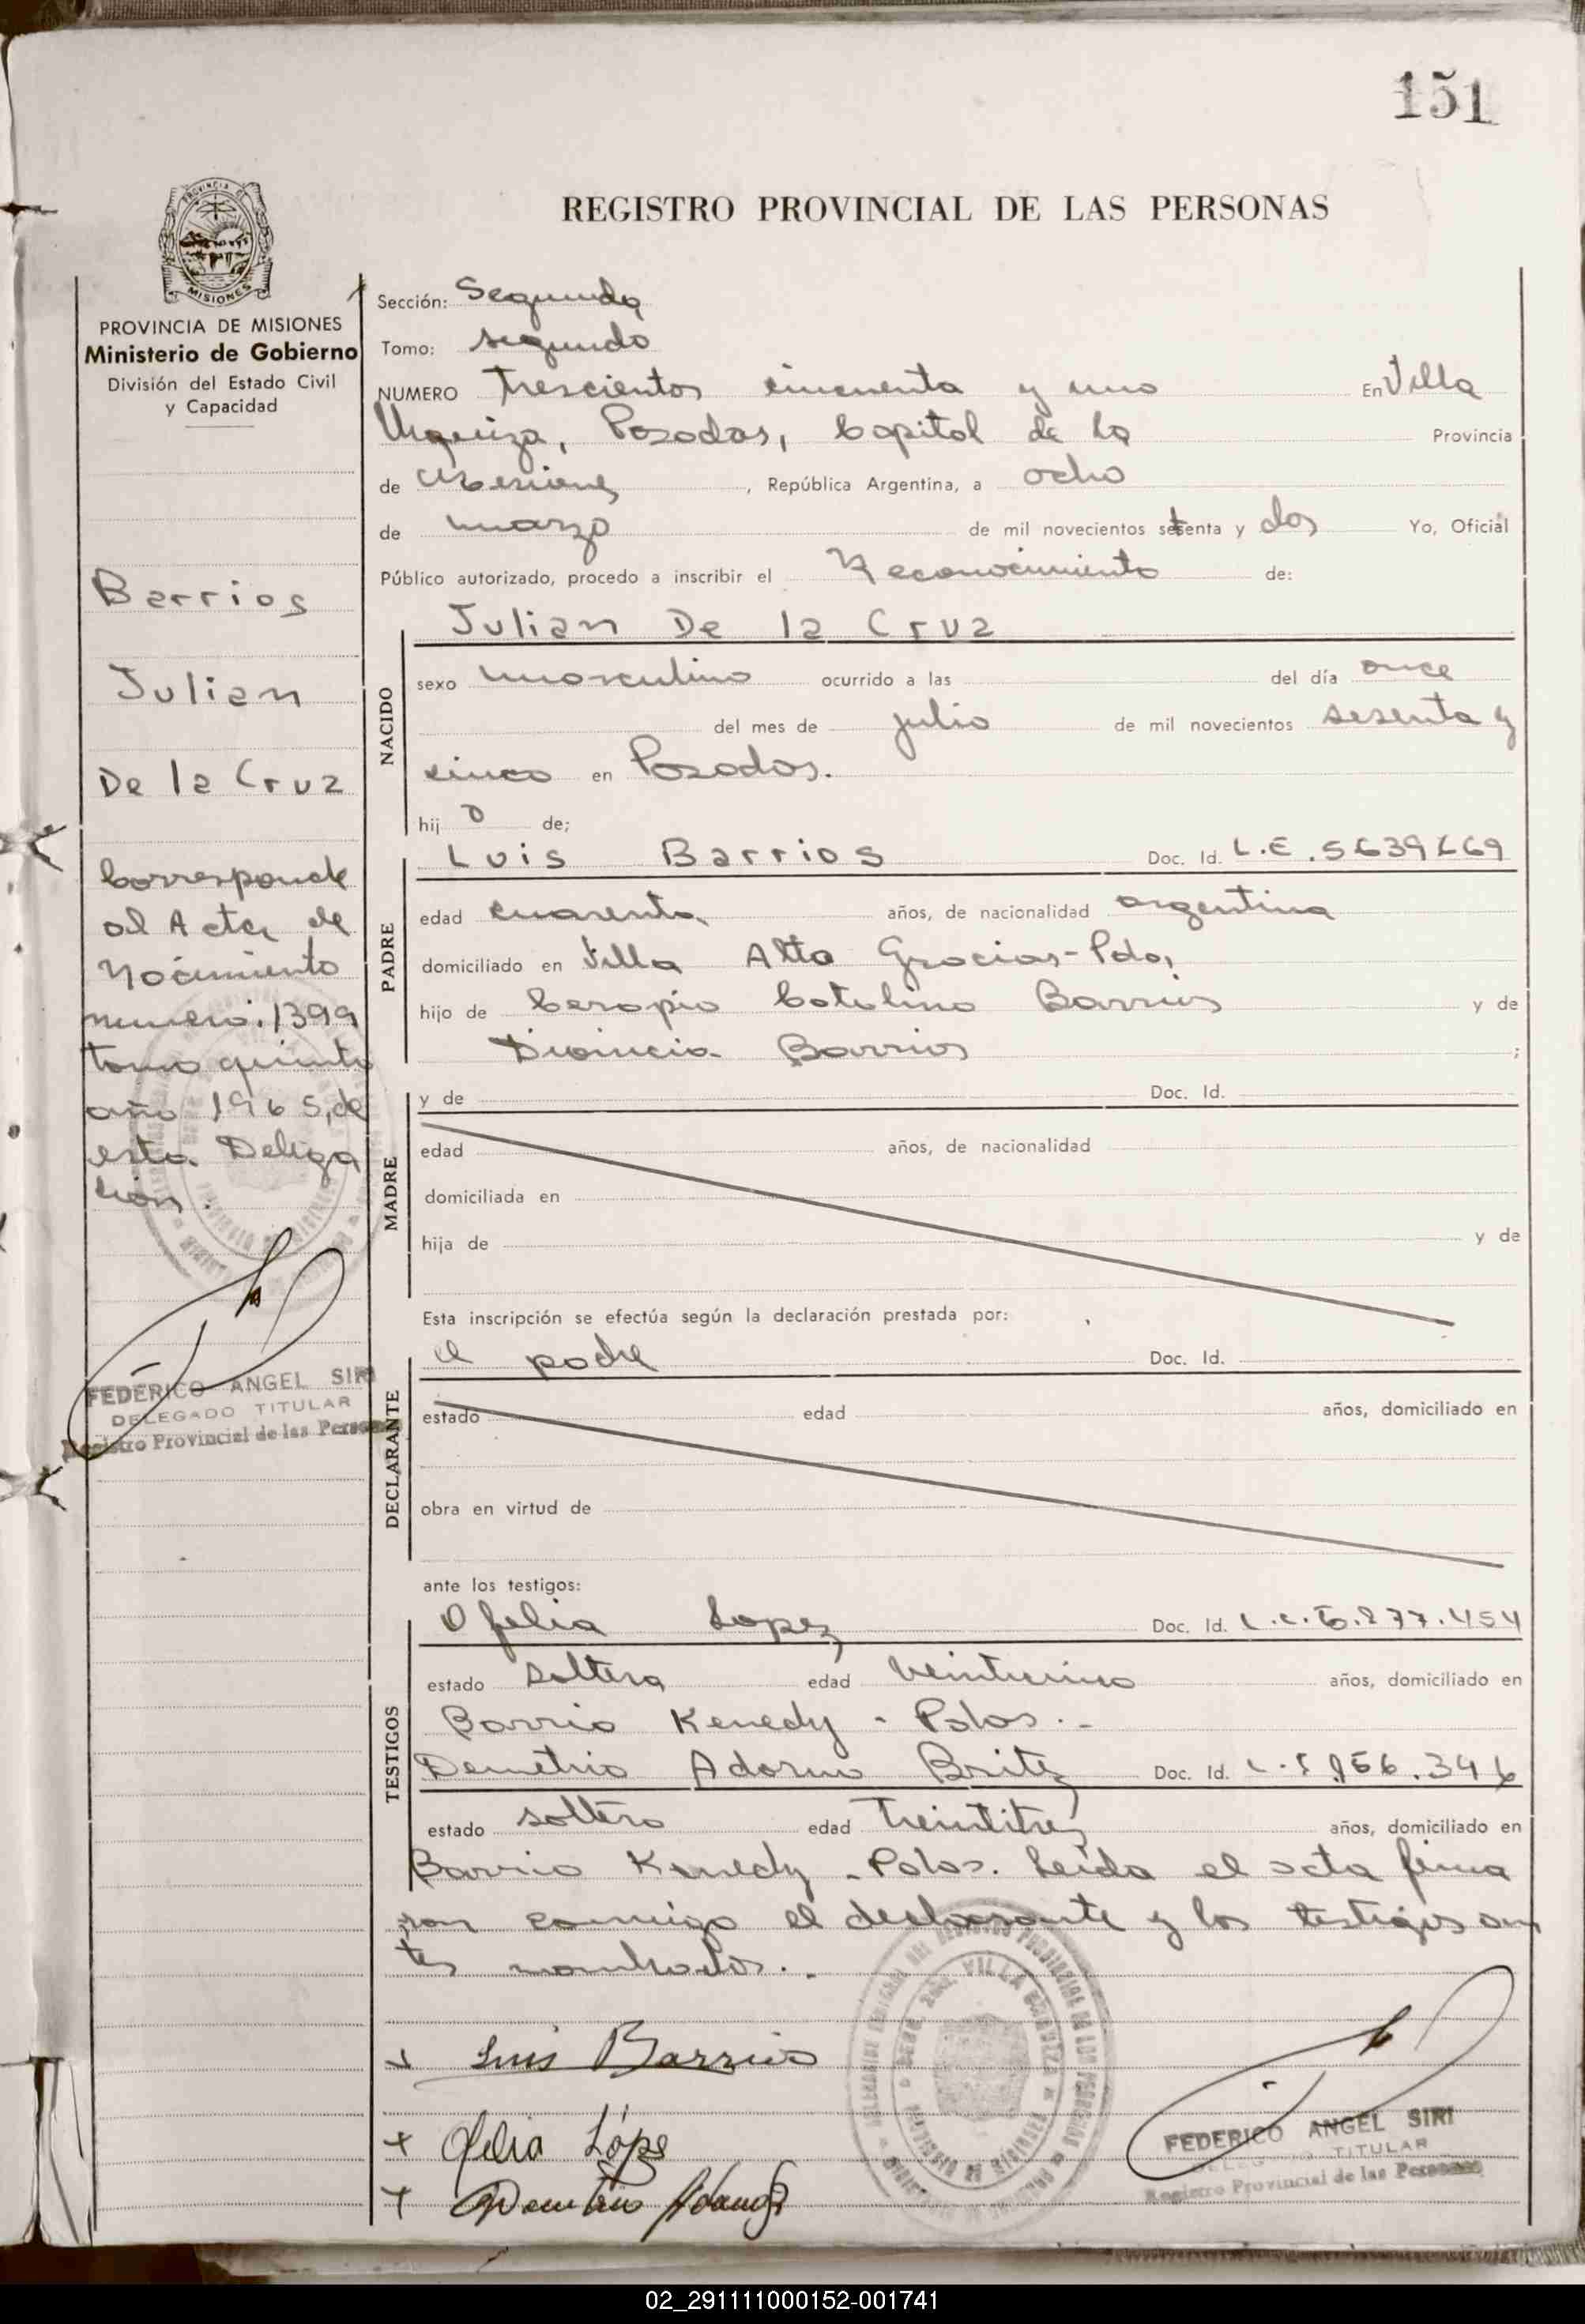 151
REGISTRO PROVINCIAL DE LAS PERSONAS
PROVINCIA DE
MISIONES
PROVINCIA DE MISIONES
Ministerio de Gobierno
División del Estado Civil
y Capacidad
Barrios
Julian
De la Cruz
Corresponde
al Acta de
Nacimiento
numero. 1399
tomo quinto
año 1965, de
esta Delega
cion.
FEDERICO ANGEL SIRI
DELEGADO TITULAR
Registro Provincial de las Personas
Sección: Segunda
Tomo: segundo
NUMERO Trescientos cincuenta y uno En Villa
Urquiza, Posadas, Capital de la Provincia
de Misiones, República Argentina, a ocho
de marzo de mil novecientos setenta y dos Yo, Oficial
Público autorizado, procedo a inscribir el Reconocimiento de:
NACIDO
Julian De la Cruz
sexo masculino ocurrido a las del día once
del mes de julio de mil novecientos sesenta y
cinco en Posadas.
hij o de;
PADRE
Luis Barrios Doc. Id. L.E. 5639669
edad cuarenta años, de nacionalidad argentina
domiciliado en Villa Alta Gracias - Pdas,
hijo de Catalino Barrios y de
Barrios ;
MADRE
y de Doc. Id.
edad años, de nacionalidad
domiciliada en
hija de y de
Esta inscripción se efectúa según la declaración prestada por:
DECLARANTE
el padre Doc. Id.
estado edad años, domiciliado en
obra en virtud de
ante los testigos:
TESTIGOS
Ofelia Lopez Doc. Id. L.C. 6.277.454
estado soltera edad veinticinco años, domiciliado en
Barrio Kenedy - Pdas. -
Demetrio Adorno Britez Doc. Id.
estado soltero edad treintitres años, domiciliado en
Barrio Kenedy - Pdas. Leida el acta firma
ron conmigo el declarante y los testigos an
tes nombrados. -
Luis Barrios
Ofelia López
Demetrio
FEDERICO ANGEL SIRI
DELEGADO TITULAR
Registro Provincial de las Personas
02_291111000152-001741